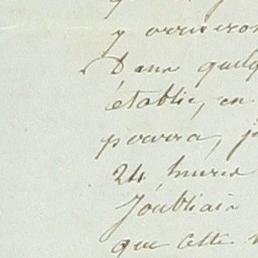 y arriveron
Dans quelq
établie, on
pourra, j
24 heures
J'oubliais
que cette